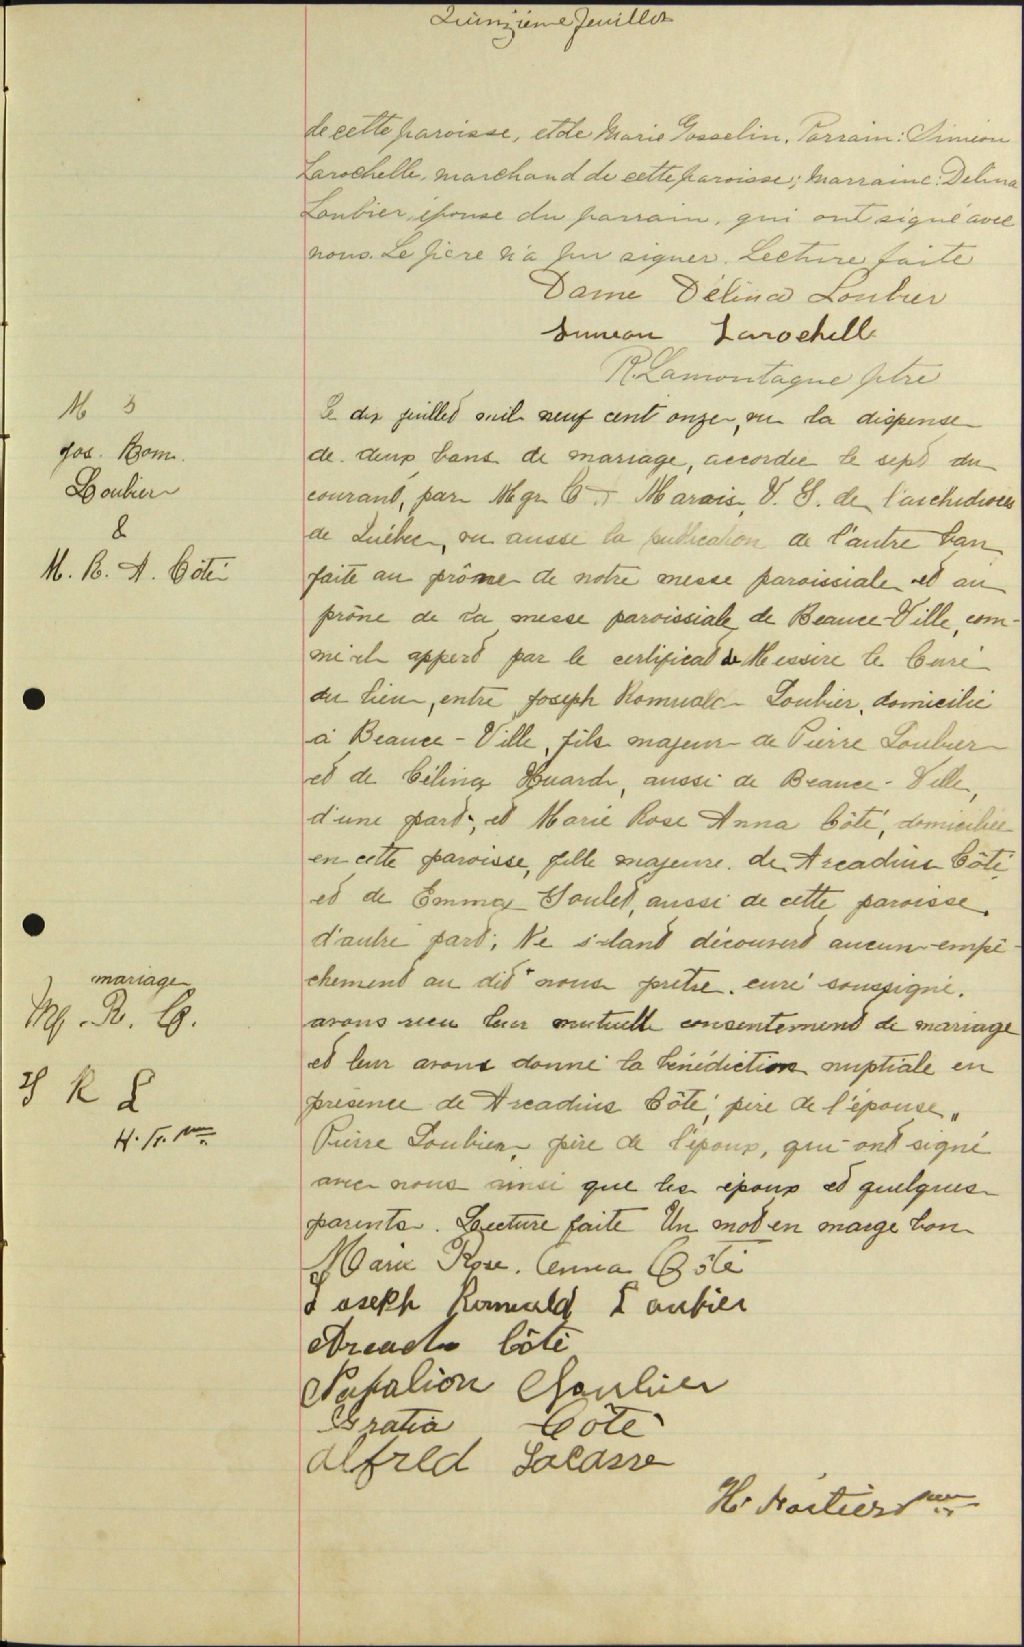 Quinzième feuillet
de cette paroisse, et de Marie Gosselin. Parrain: Siméon
Larochelle, marchand de cette paroisse; Marraine: Délina
Loubier, épouse du parrain, qui ont signé avec
nous. Le père n'a pu signer. Lecture faite
Dame Délina Loubier
Simeon Larochelle
R. Lamontagne ptre
M 3
Jos. Rom.
Loubier
&
M. R. A. Côté
Le dix juillet mil neuf cent onze, vu la dispense
de deux bans de mariage, accordée le sept du
courant, par Mgr C. Marois, V. G. de l'archidiocèse
de Québec, vu aussi la publication de l'autre ban
faite au prône de notre messe paroissiale et au
prône de la messe paroissiale de Beauce-Ville, com-
me il appert par le certificat de Messire le Curé
du lieu, entre Joseph Romuald Loubier, domicilié
à Beauce-Ville, fils majeur de Pierre Loubier
et de Célina Huard, aussi de Beauce-Ville,
d'une part; et Marie Rose Anna Côté, domiciliée
en cette paroisse, fille majeure de Arcadius Côté
et de Emma Goulet, aussi de cette paroisse,
d'autre part; Ne s'étant découvert aucun empê-
chement au dit + nous prêtre, curé soussigné,
avons reçu leur mutuelle consentement de mariage
et leur avons donné la bénédiction nuptiale en
présence de Arcadius Côté, père de l'épouse,
Pierre Loubier, père de l'époux, qui ont signé
avec nous ainsi que les époux et quelques
parents. Lecture faite Un mot en marge bon
mariage
M. R. C.
J R L
H. F. ptre
Marie Rose Anna Côté
Joseph Romuald Loubier
Arcade Côté
Napalion Gloubier
Gratia Côté
Alfred Lacasse
H. Fortier ptre